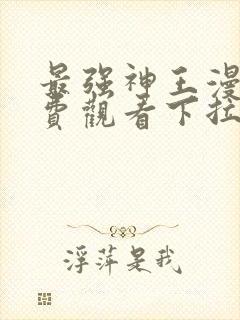 最强神王漫
费觀看下拉
浮萍是我